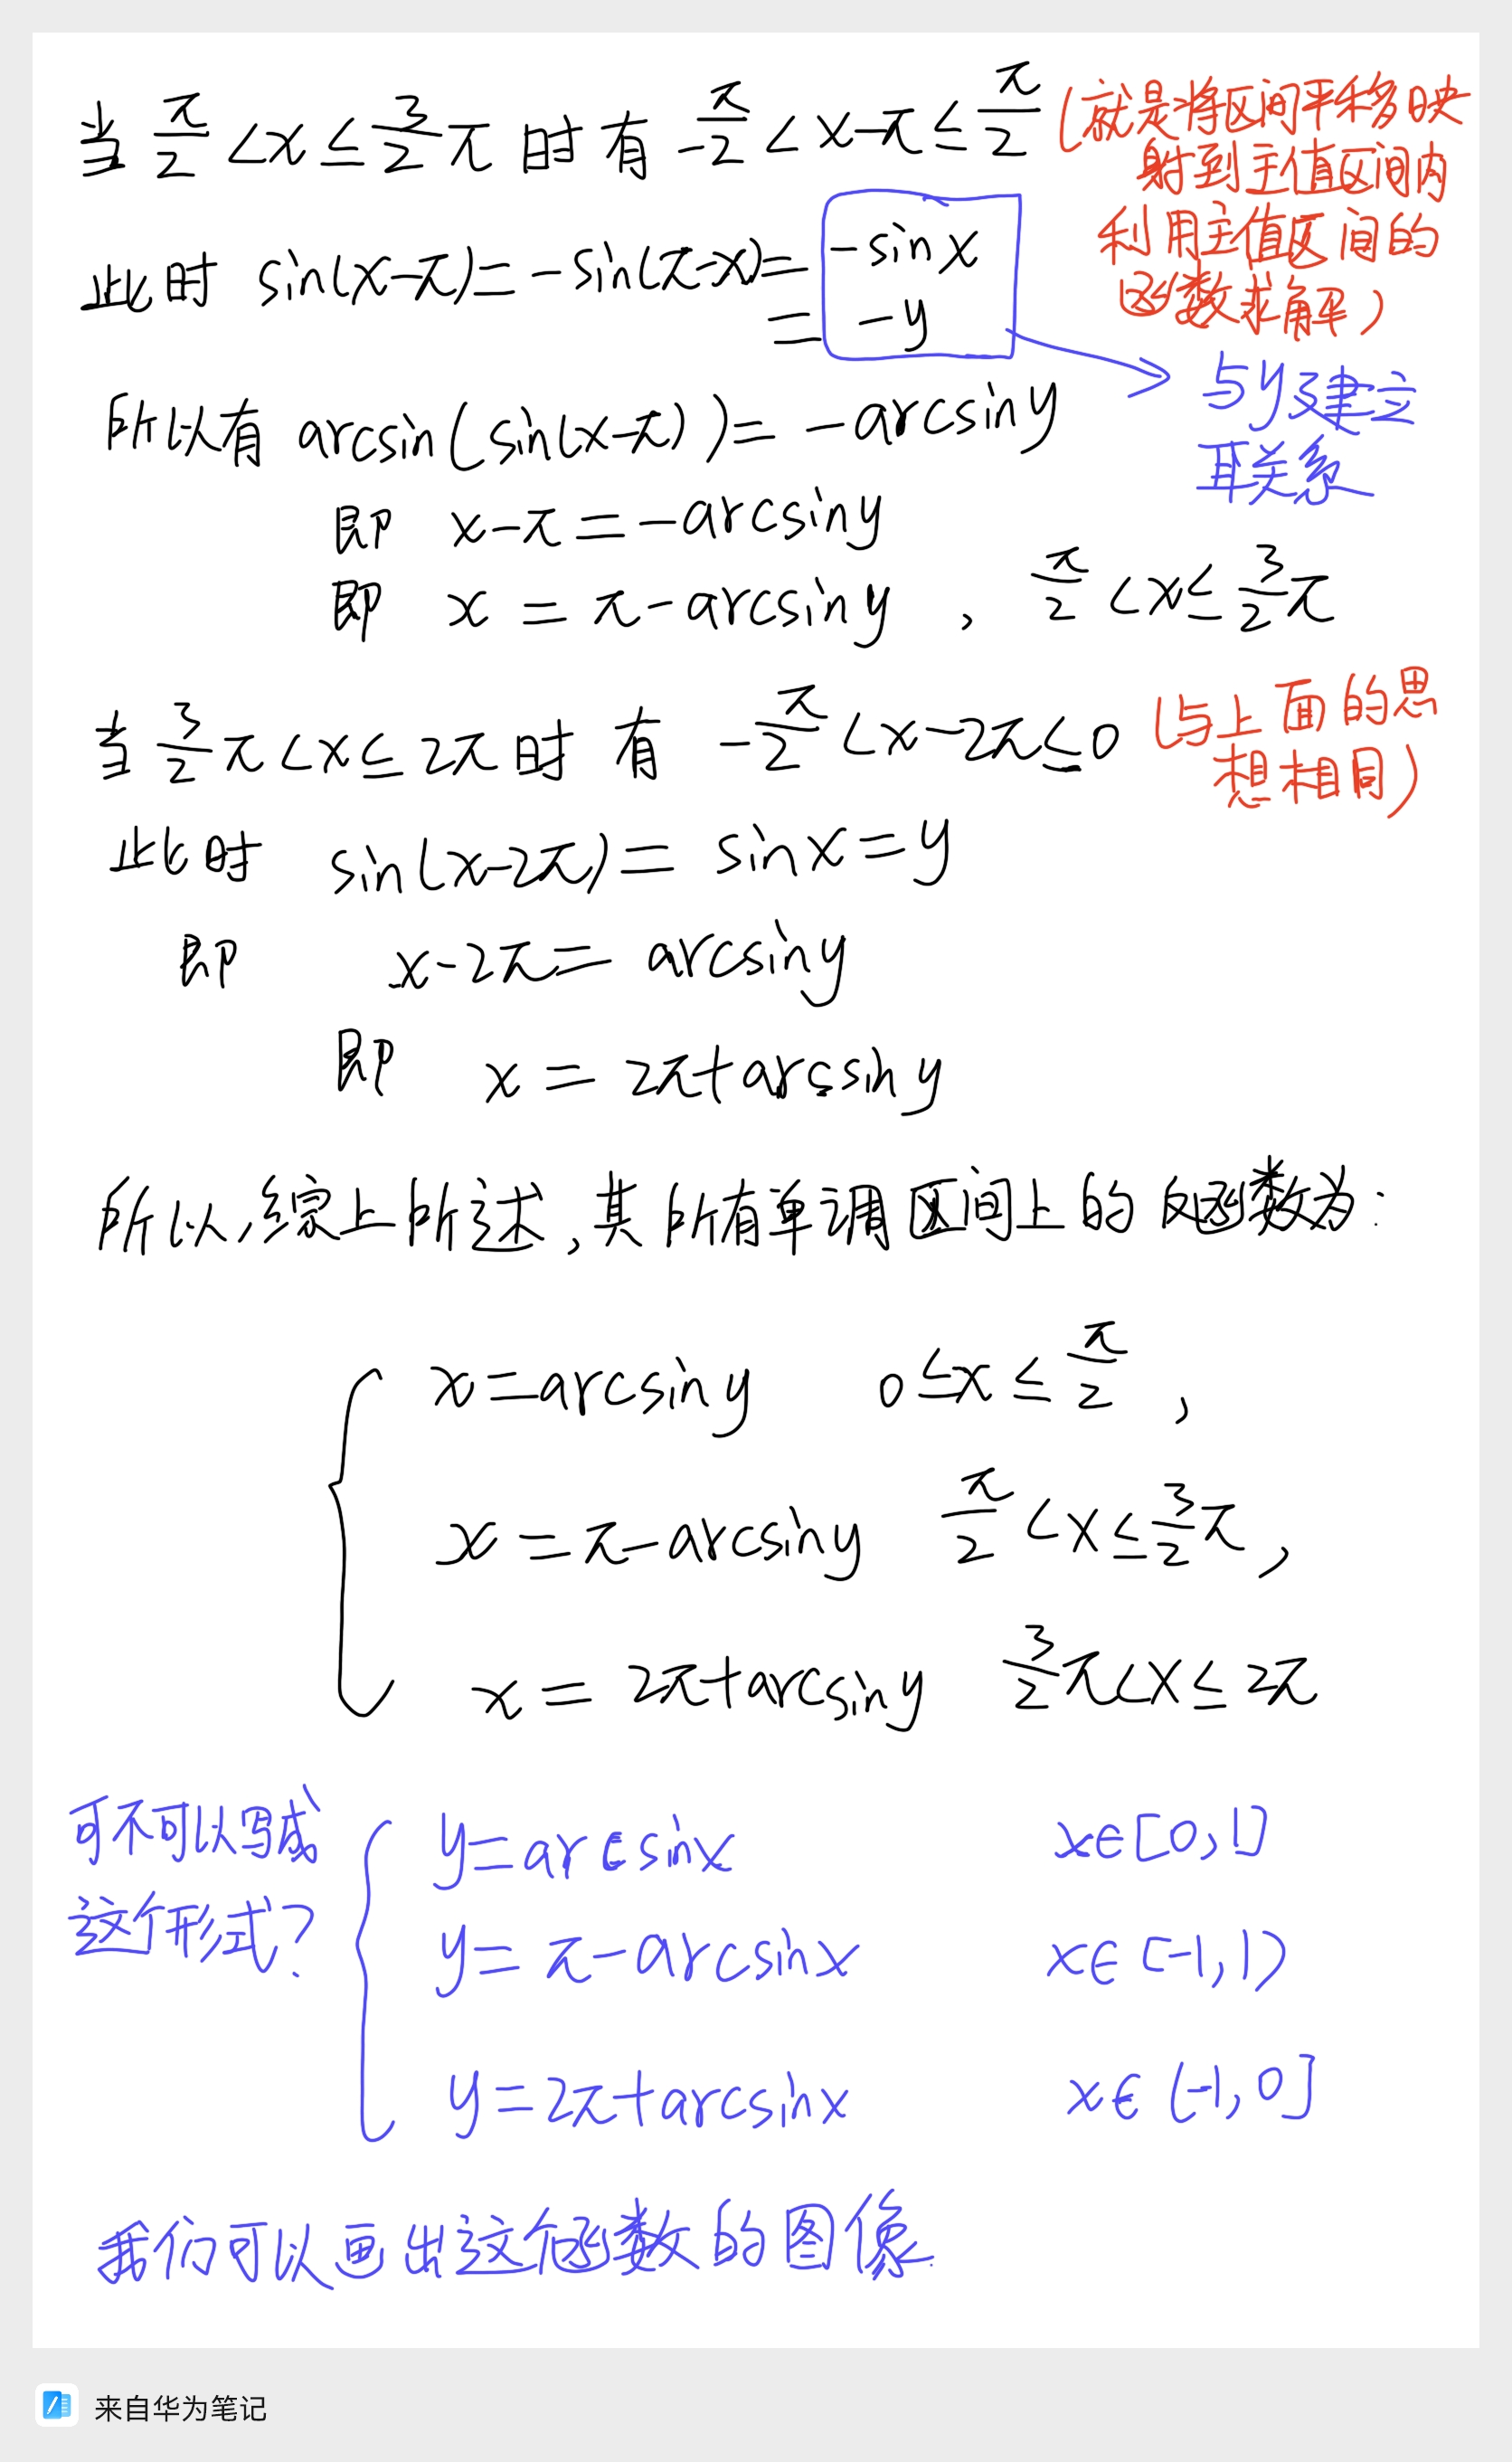 当 π/2 < x ≤ 3/2 π 时 有 -π/2 < x-π ≤ π/2 (就是将区间平移映
射到主值区间内
利用主值区间的
函数求解)
此时 sin(x-π) = -sin(π-x) = -sinx
= -y
与y建立
联关系
所以有 arcsin(sin(x-π)) = -arcsiny
即 x-π = -arcsiny
即 x = π-arcsiny , π/2 < x ≤ 3/2 π
当 3/2 π < x ≤ 2π 时 有 -π/2 < x-2π ≤ 0 (与上面的思
想相同)
此时 sin(x-2π) = sinx = y
即 x-2π = arcsiny
即 x = 2π+arcsiny
所以,综上所述,其所有单调区间上的反函数为:
x = arcsiny 0 ≤ x ≤ π/2 ,
x = π-arcsiny π/2 < x ≤ 3/2 π ,
x = 2π+arcsiny 3/2 π < x ≤ 2π
可不可以写成
这个形式?
y = arcsinx x∈[0,1]
y = π-arcsinx x∈[-1,1)
y = 2π+arcsinx x∈(-1,0]
我们可以画出这个函数的图像.
来自华为笔记